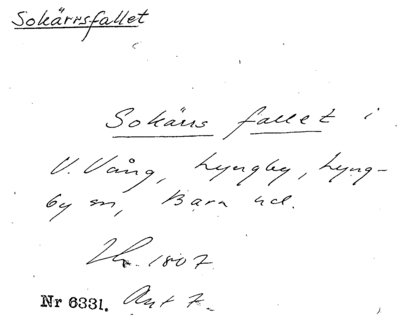 Sokärrsfallet
Sokärrs fallet i
V. Vång, Lyngby, Lyng-
by sn, Bara hd.
1807
Nr 6331. Akt 7.